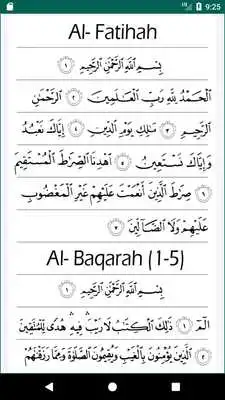 9:25
Al- Fatihah
بِسْمِ ٱللَّهِ ٱلرَّحْمَٰنِ ٱلرَّحِيمِ ١
ٱلْحَمْدُ لِلَّهِ رَبِّ ٱلْعَٰلَمِينَ ٢ ٱلرَّحْمَٰنِ
ٱلرَّحِيمِ ٣ مَٰلِكِ يَوْمِ ٱلدِّينِ ٤ إِيَّاكَ نَعْبُدُ
وَإِيَّاكَ نَسْتَعِينُ ٥ ٱهْدِنَا ٱلصِّرَٰطَ ٱلْمُسْتَقِيمَ
٦ صِرَٰطَ ٱلَّذِينَ أَنْعَمْتَ عَلَيْهِمْ غَيْرِ ٱلْمَغْضُوبِ
عَلَيْهِمْ وَلَا ٱلضَّآلِّينَ ٧
Al- Baqarah (1-5)
بِسْمِ ٱللَّهِ ٱلرَّحْمَٰنِ ٱلرَّحِيمِ ١
الٓمٓ ١ ذَٰلِكَ ٱلْكِتَٰبُ لَا رَيْبَ ۛ فِيهِ ۛ هُدًى لِّلْمُتَّقِينَ
٢ ٱلَّذِينَ يُؤْمِنُونَ بِٱلْغَيْبِ وَيُقِيمُونَ ٱلصَّلَوٰةَ وَمِمَّا رَزَقْنَٰهُمْ